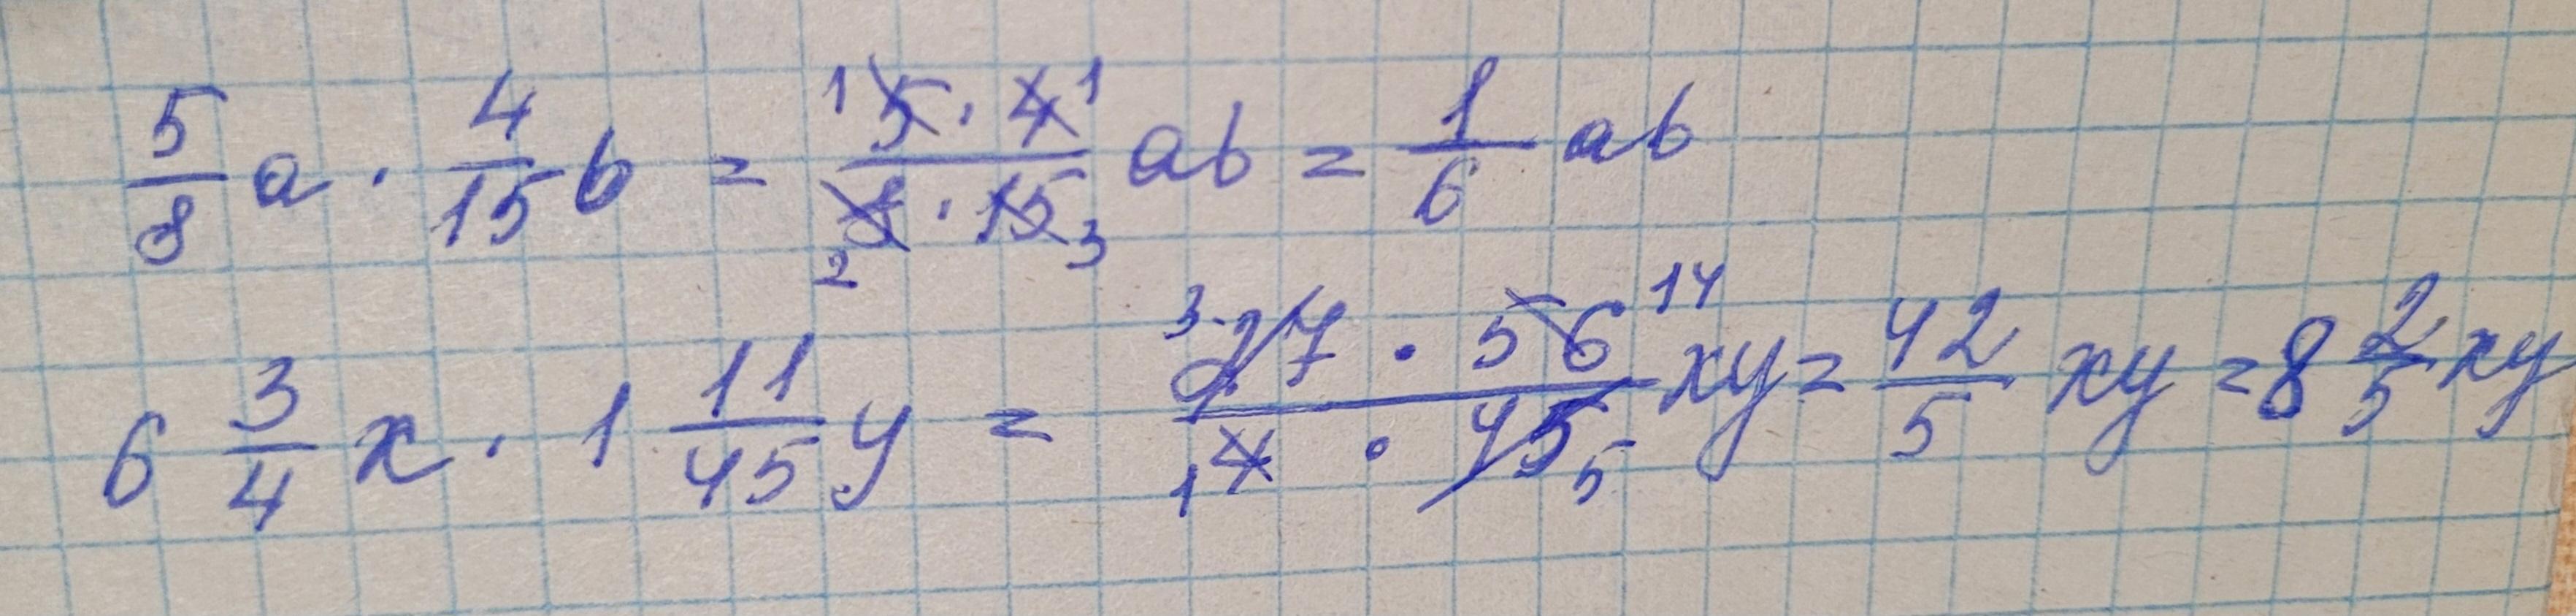 5/8 a · 4/15 b = 1 5 · 4 1 / 2 8 · 15 3 ab = 1/6 ab
6 3/4 x · 1 11/45 y = 3 27 · 56 14 / 1 4 · 45 5 xy = 42/5 xy = 8 2/5 xy